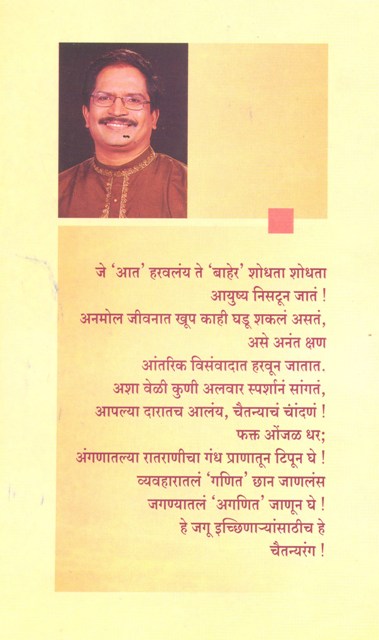 जे ‘आत’ हरवलंय ते ‘बाहेर’ शोधता शोधता
आयुष्य निसटून जातं !
अनमोल जीवनात खूप काही घडू शकलं असतं,
असे अनंत क्षण
आंतरिक विसंवादात हरवून जातात.
अशा वेळी कुणी अलवार स्पर्शानं सांगतं,
आपल्या दारातच आलंय, चैतन्याचं चांदणं !
फक्त ओंजळ धर;
अंगणातल्या रातराणीचा गंध प्राणातून टिपून घे !
व्यवहारातलं ‘गणित’ छान जाणलंस
जगण्यातलं ‘अगणित’ जाणून घे !
हे जगू इच्छिणाऱ्यांसाठीच हे
चैतन्यरंग !